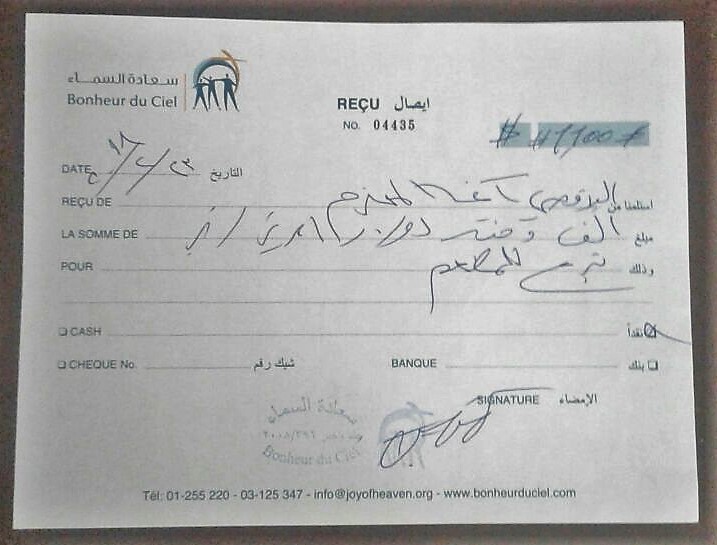 سعادة السماء
Bonheur du Ciel
REÇU ايصال
NO. 04435
DATE التاريخ
REÇU DE المحترم استلمنا من
LA SOMME DE الف دولار مبلغ
POUR تبرع للمطعم وذلك
CASH نقداً
CHEQUE No. شيك رقم BANQUE بنك
SIGNATURE الإمضاء
سعادة السماء
Bonheur du Ciel
Tél: 01-255 220 - 03-125 347 - info@joyofheaven.org - www.bonheurduciel.com